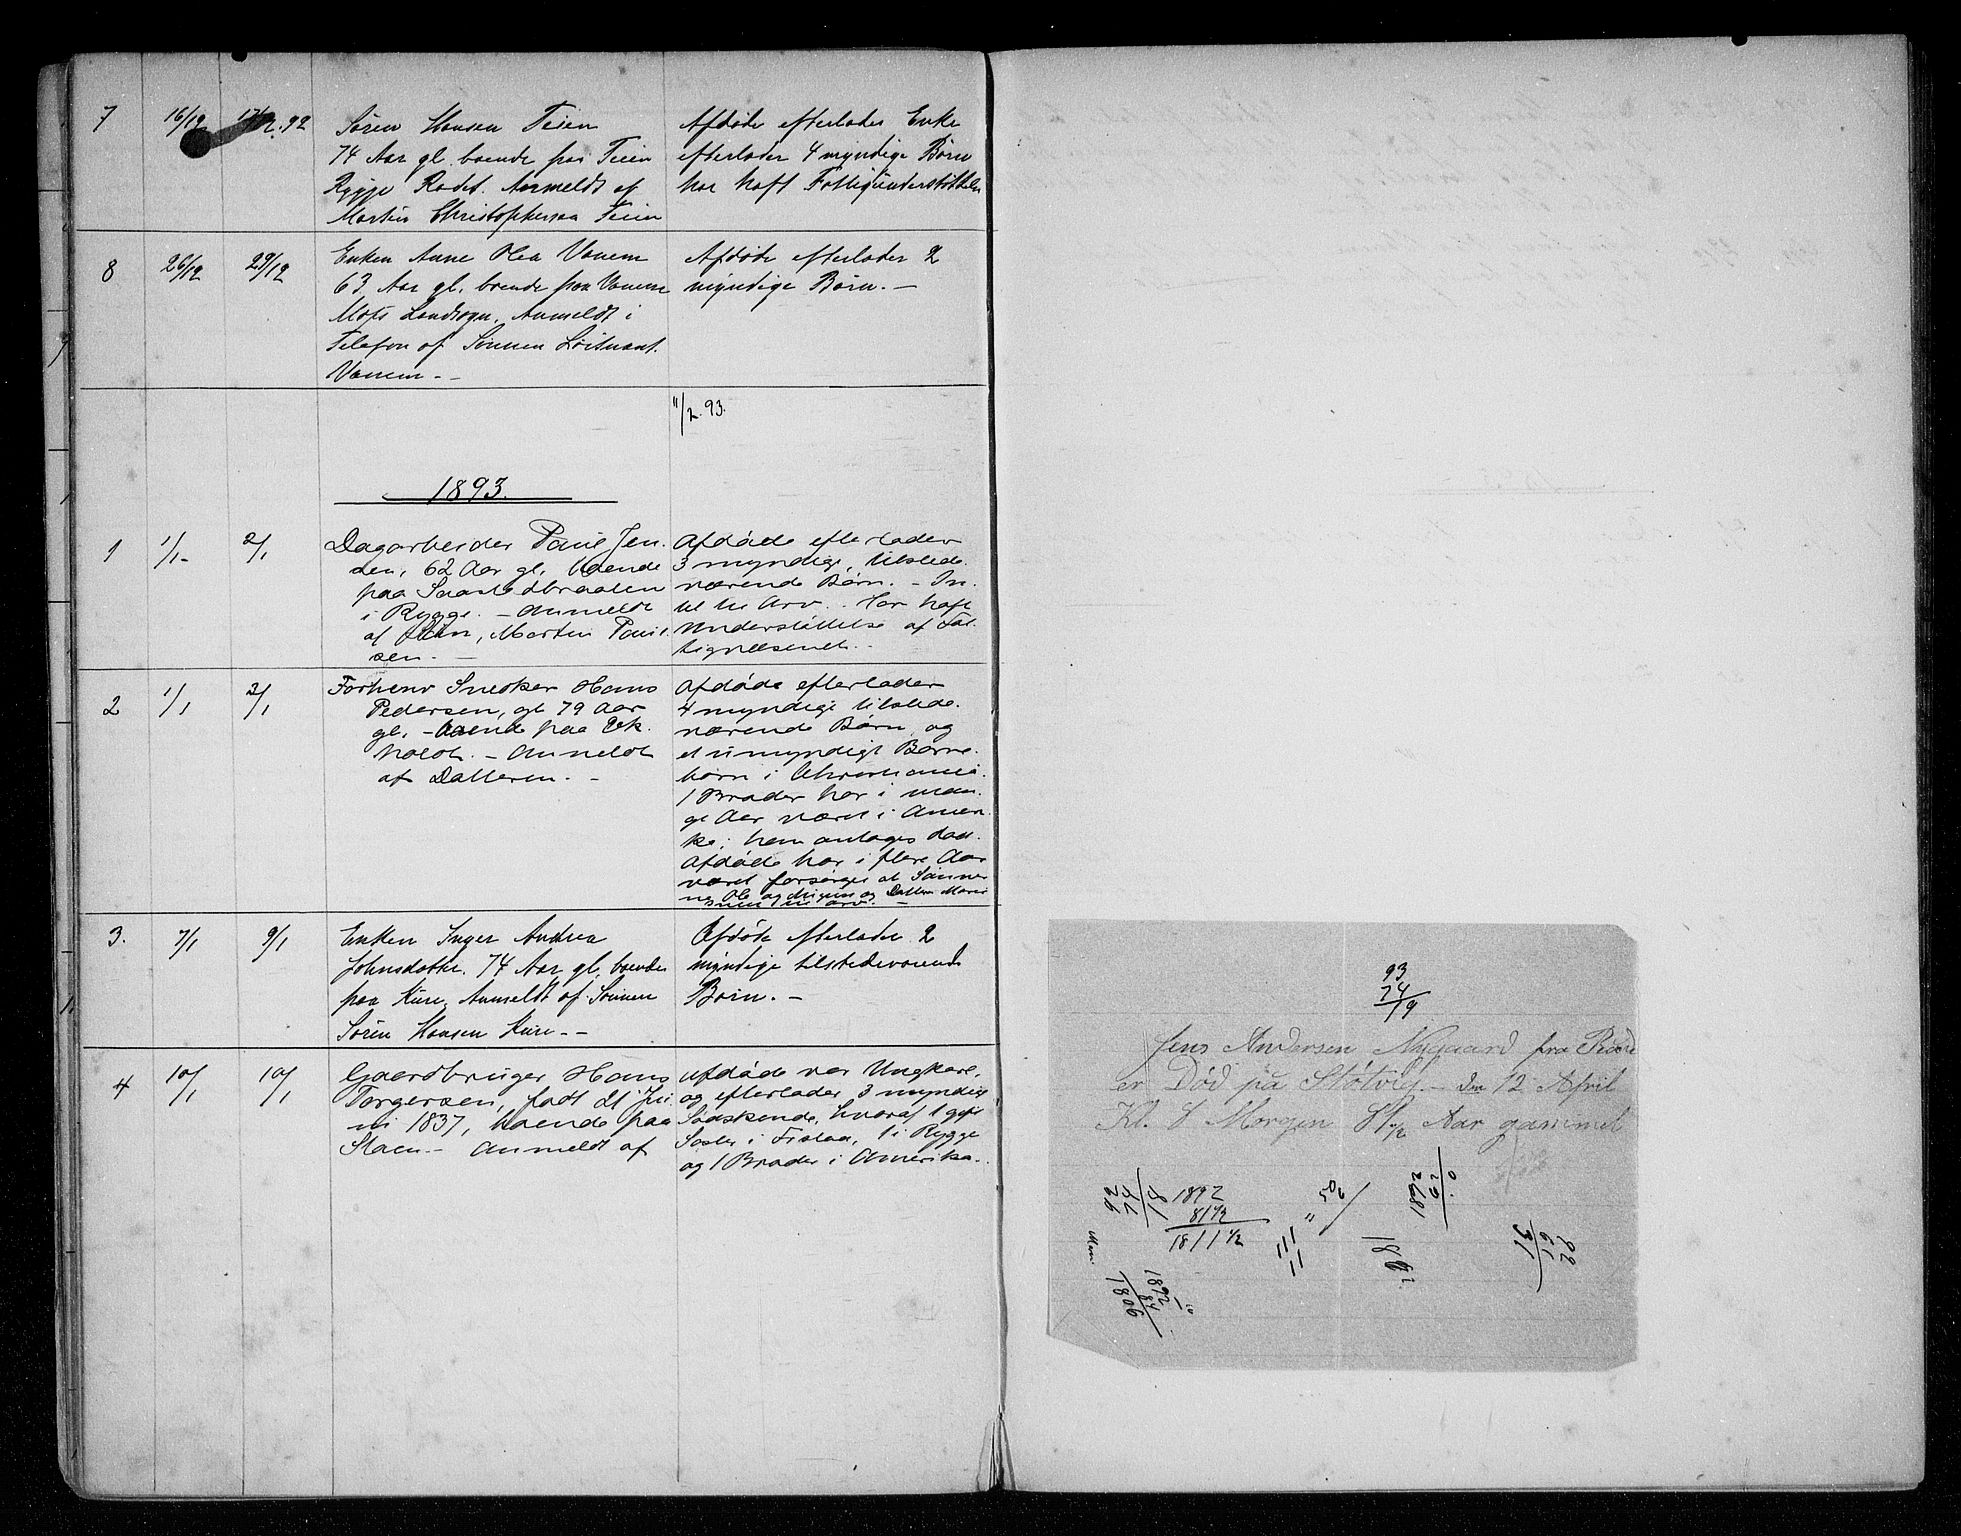 7 16/12 17/12. 92 Søren Hansen Teien Afdøde efterlader Enke
74 Aar gl. boende paa Teien efterlader 4 myndige Børn
Rygge Anmeldt af har haft Fattigunderstøttelse
Martin Christophersen Teien
8 26/12 29/12 Enken Anne Olea Vanem Afdøde efterlader 2
63 Aar gl. boende paa Vanem myndige Børn. —
Moss Landsogn. Anmeldt i
Telefon af Sønnen Løitnant
Vanem. —
11/2. 93.
1893.
1 1/1 2/1 Dagarbeider Paul Jen- Afdøde efterlader
sen, 62 Aar gl. boende 3 myndige, tilstede-
paa værende Børn. — In-
i Rygge. — Anmeldt tet til Arv. Har haft
af Søn, Martin Paul- Understøttelse af Fat-
sen. — tigvæsenet. —
2 1/1 3/1 Forhenv Snedker Hans Afdøde efterlader
Pedersen, gl 79 Aar 4 myndige tilstede-
gl. — boende paa Ek- værende Børn og
holdt. — Anmeldt et umyndigt Barne-
af Datteren. — barn i Christiania.
1 Broder har i man-
ge Aar været i Ameri-
ka; han antages død.
Afdøde har i flere Aar
været forsørget af Sønner-
ne Ole og og Datteren Marie
Intet til Arv. —
3. 7/1 9/1 Enken Inger Andrea Afdøde efterlader 2
Johnsdatter. 74 Aar gl. boende myndige tilstedeværende
paa Kure, Anmeldt af Sønnen Børn. —
Søren Hansen Kure. —
4 10/1 10/1 Gaardbruger Hans Afdøde var Ungkarl,
Torgersen, født 21 Ju- og efterlader 3 myndige
ni 1837, boende paa Sødskende, hvoraf 1 gift
Anmeldt af Søster i 1 i Rygge
og 1 Broder i Amerika.
93
74
19
Jens Andersen Nygaard fra
er Død på Støtvig — den 12 April
Kl. 8 Morgen 81 1/2 Aar gammel
1892
81 1/2
1811 1/2
1892
1806
92
61
31